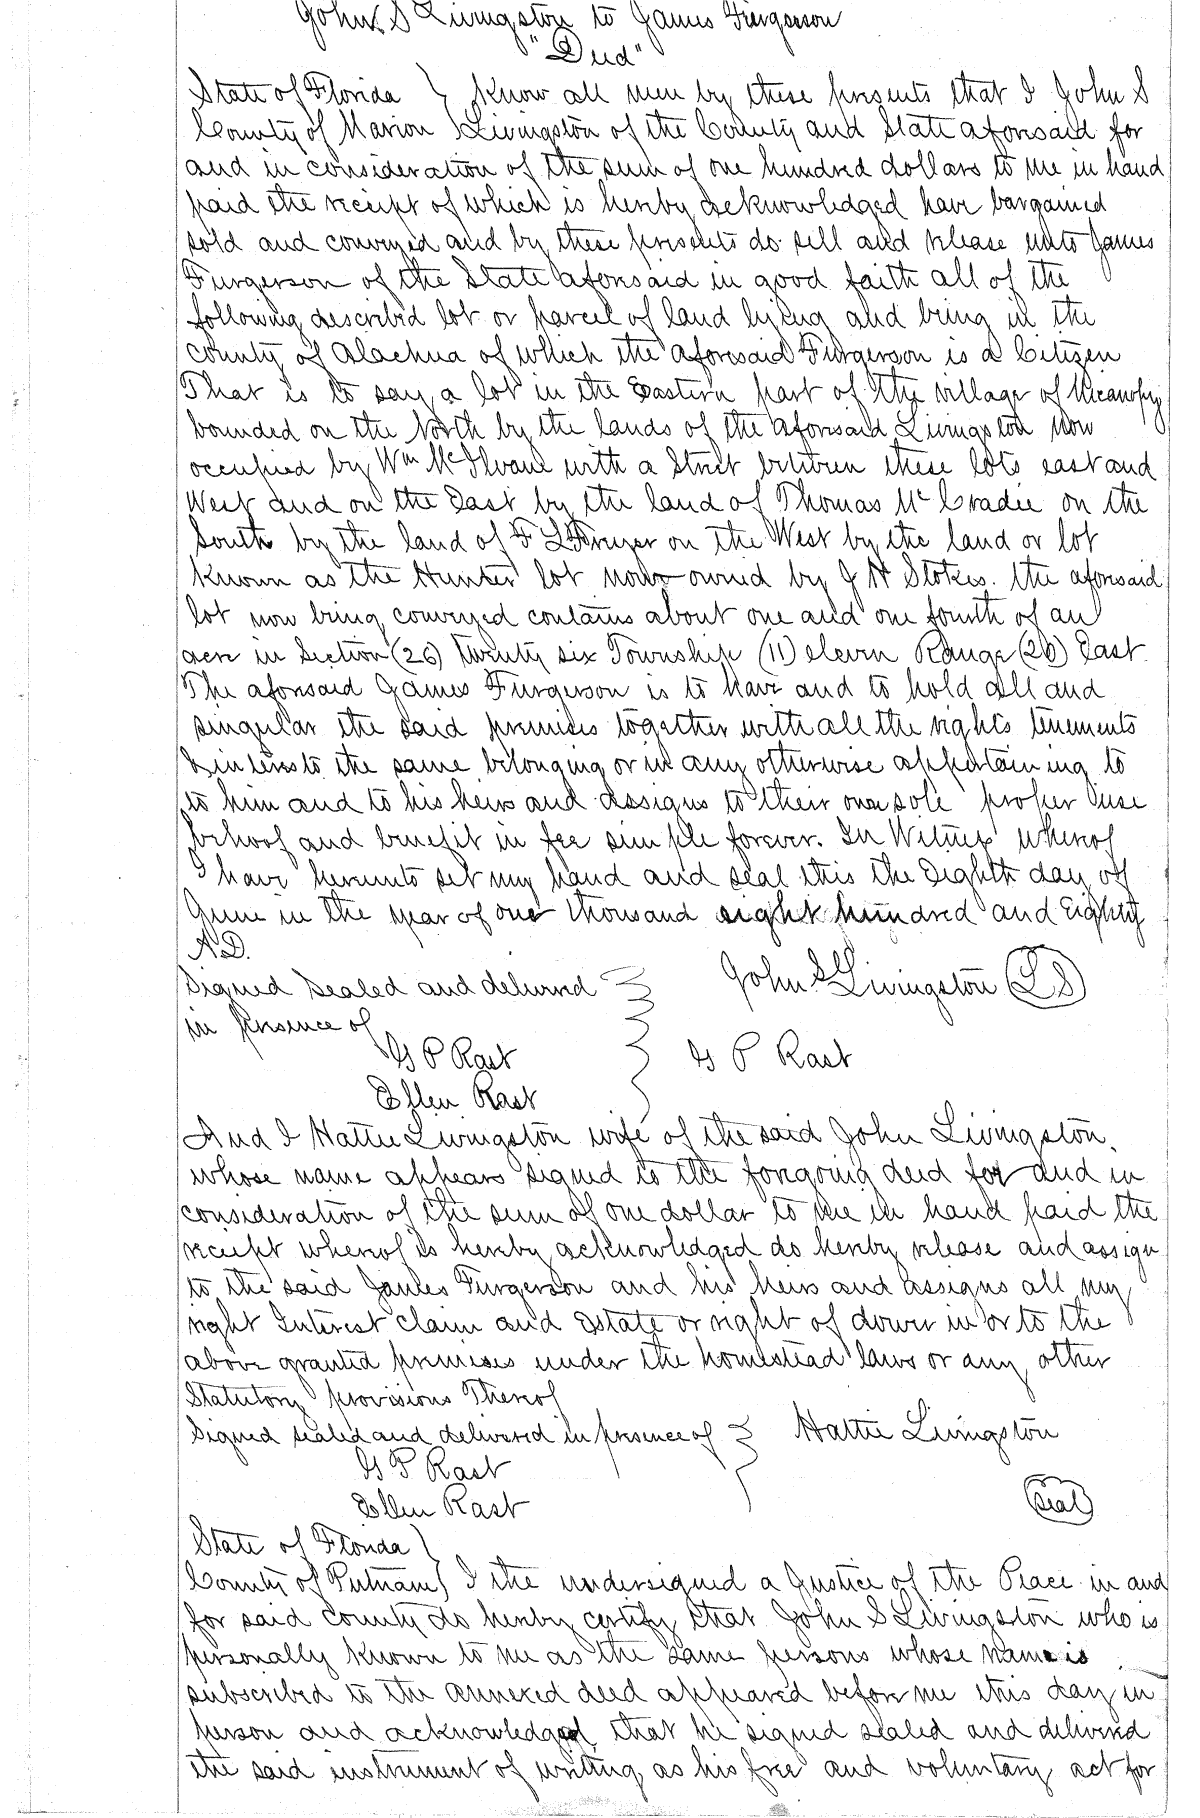 John S Livingston to James Furgerson
"Deed"
State of Florida } Know all men by these presents that I John S
County of Marion } Livingston of the County and State aforesaid for
and in consideration of the sum of one hundred dollars to me in hand
paid the receipt of which is hereby acknowledged have bargained
sold and conveyed and by these presents do sell and release unto James
Furgerson of the State aforesaid in good faith all of the
following described lot or parcel of land lying and being in the
county of Alachua of which the aforesaid Furgerson is a Citizen
That is to say a lot in the Eastern part of the village of Micanopy
bounded on the North by the lands of the aforesaid Livingston now
occupied by Wm McIlvane with a Street between these lots east and
West and on the East by the land of Thomas McCradie on the
South by the land of F L on the West by the land or lot
known as the Hunter lot now owned by J H Stokes. the aforesaid
lot now being conveyed contains about one and one fourth of an
acre in Section (26) twenty six Township (11) eleven Range (20) East.
The aforesaid James Furgerson is to have and to hold all and
singular the said premises together with all the rights tenements
& interests the same belonging or in any otherwise appertaining to
to him and to his heirs and assigns to their own sole proper use
behoof and benefit in fee simple forever. In Witness whereof
I have hereunto set my hand and seal this the Eighth day of
June in the year of one thousand eight hundred and Eighty
A.D.
Signed Sealed and delivered } John S Livingston (LS)
in presence of
G P Rast } G P Rast
Ellen Rast
And I Hattie Livingston wife of the said John Livingston,
whose name appears signed to the foregoing deed for and in
consideration of the sum of one dollar to me in hand paid the
receipt whereof is hereby acknowledged do hereby release and assign
to the said James Furgerson and his heirs and assigns all my
right Interest claim and Estate or right of dower in or to the
above granted premises under the homestead laws or any other
Statutory provisions Thereof
Signed sealed and delivered in presence of } Hattie Livingston
G P Rast
Ellen Rast (seal)
State of Florida }
County of Putnam } I the undersigned a Justice of the Peace in and
for said county do hereby certify that John S Livingston who is
personally known to me as the same persons whose name is
subscribed to the annexed deed appeared before me this day in
person and acknowledged that he signed sealed and delivered
the said instrument of writing as his free and voluntary act for